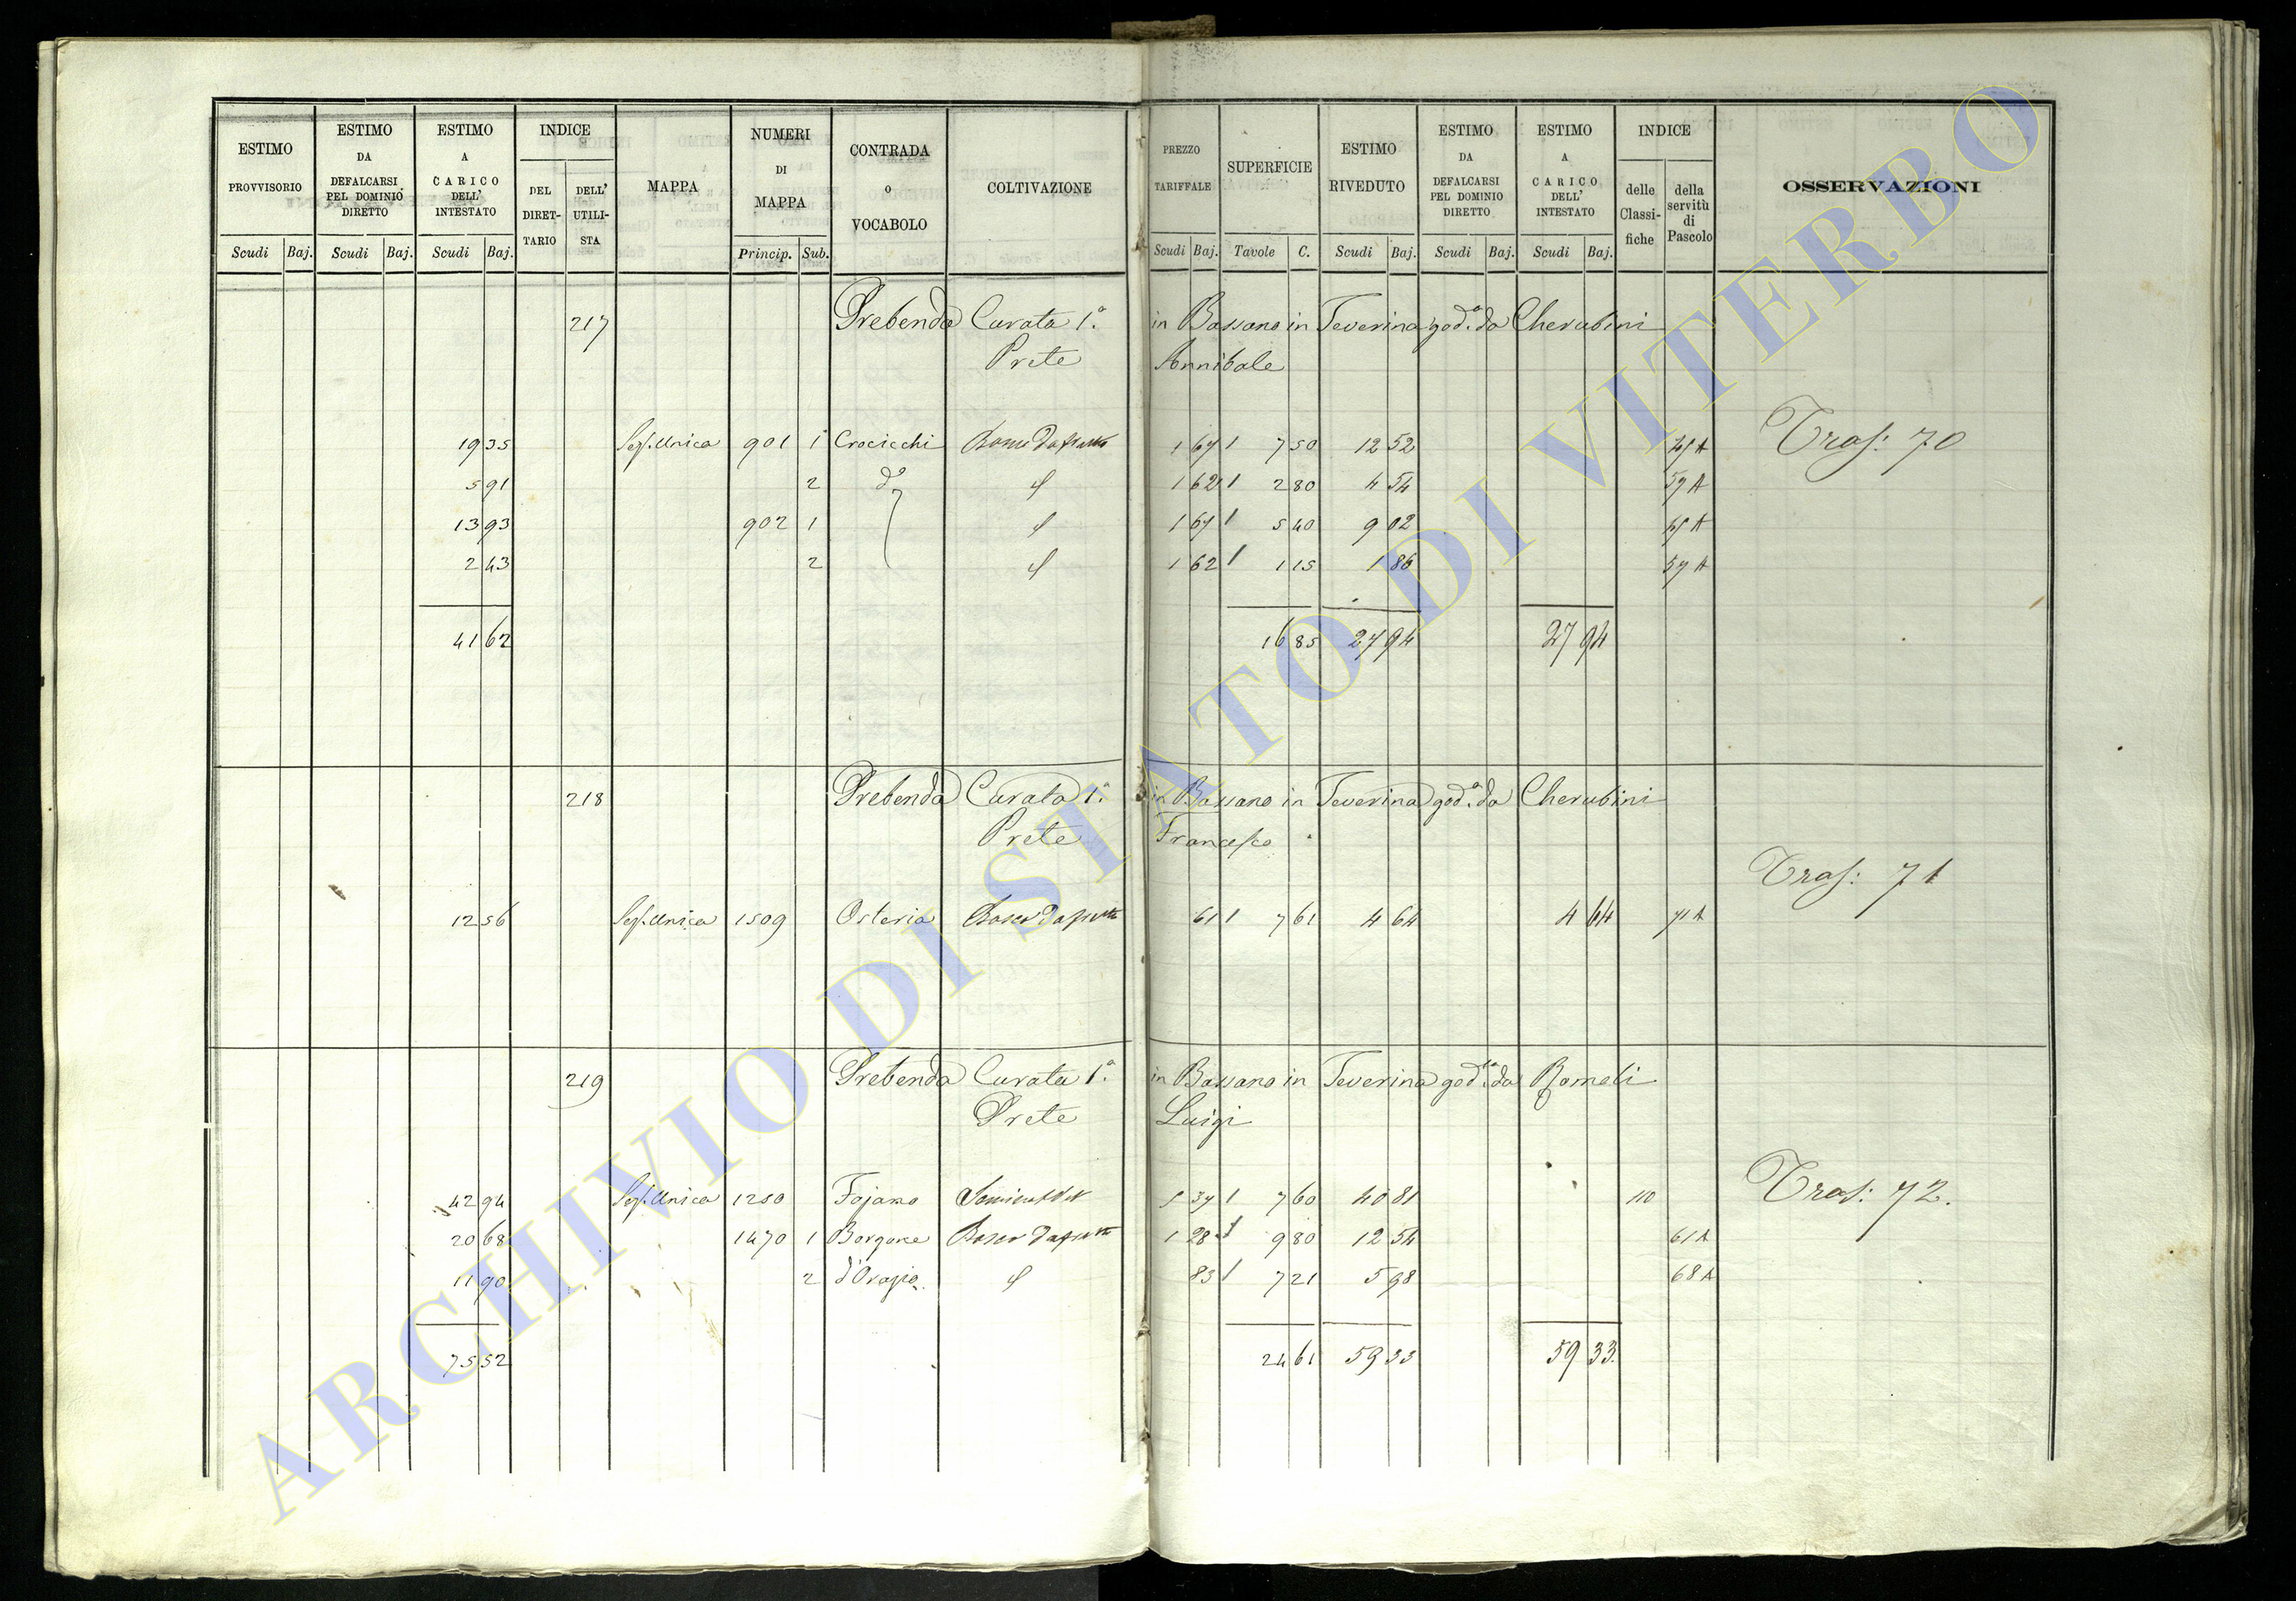 ESTIMO PROVVISORIO | ESTIMO DA DEFALCARSI PEL DOMINIO DIRETTO | ESTIMO A CARICO DELL' INTESTATO | INDICE DEL DIRET-TARIO | DELL' UTILI-STA | MAPPA | NUMERI DI MAPPA | CONTRADA o VOCABOLO | COLTIVAZIONE | PREZZO TARIFFALE | SUPERFICIE | ESTIMO RIVEDUTO | ESTIMO DA DEFALCARSI PEL DOMINIO DIRETTO | ESTIMO A CARICO DELL' INTESTATO | INDICE delle Classi-fiche | della servitù di Pascolo | OSSERVAZIONI
Scudi Baj. | Scudi Baj. | Scudi Baj. | Princip. Sub. | Scudi Baj. | Tavole C. | Scudi Baj. | Scudi Baj. | Scudi Baj.
217 Prebenda Curata 1.a in Bassano in Teverina god.a da Cherubini
Prete Annibale
19 35 Sez. Unica 901 1 Crocicchi 1 67 1 7 50 12 52 Tras: 70
5 91 2 do 1 62 1 2 80 4 54 59 A
13 93 902 1 1 67 1 5 40 9 02
2 43 2 1 62 1 1 15 1 86 59 A
41 62 16 85 27 94 27 94
218 Prebenda Curata 1.a in Bassano in Teverina god.a da Cherubini
Prete Francesco
Tras: 71
12 56 Sez. Unica 1509 Osteria 61 1 7 61 4 64 4 64 71 A
219 Prebenda Curata 1.a in Bassano in Teverina god.a da Romoli
Prete Luigi
42 94 Sez. Unica 1250 Fojano 5 37 1 7 60 40 81 110 Tras: 72.
20 68 1470 1 Borgone 1 28 1 9 80 12 54 61 A
11 90 2 d'Orazio 83 1 7 21 5 98 68 A
75 52 24 61 59 33 59 33.
ARCHIVIO DI STATO DI VITERBO